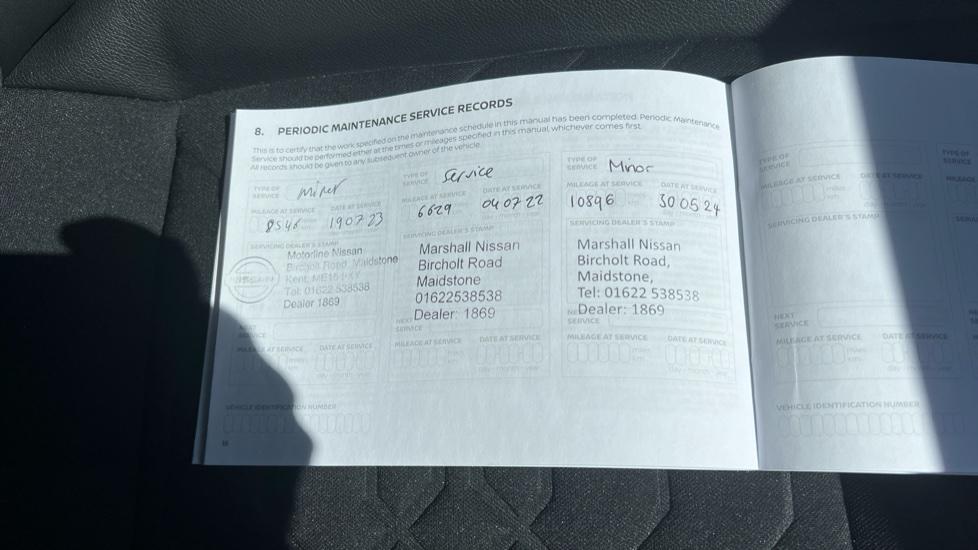 8. PERIODIC MAINTENANCE SERVICE RECORDS
This is to certify that the work specified on the maintenance schedule in this manual has been completed. Periodic Maintenance
Service should be performed either at the times or mileages specified in this manual, whichever comes first.
All records should be given to any subsequent owner of the vehicle.
TYPE OF
SERVICE
minor
MILEAGE AT SERVICE DATE AT SERVICE
8546 19 07 23
SERVICING DEALER'S STAMP
Motorline Nissan
Bircholt Road, Maidstone
Kent,
Tel: 01622 538538
Dealer 1869
NEXT
SERVICE
MILEAGE AT SERVICE DATE AT SERVICE
VEHICLE IDENTIFICATION NUMBER
TYPE OF
SERVICE
Service
MILEAGE AT SERVICE DATE AT SERVICE
6629 04 07 22
SERVICING DEALER'S STAMP
Marshall Nissan
Bircholt Road
Maidstone
01622538538
Dealer: 1869
NEXT
SERVICE
MILEAGE AT SERVICE DATE AT SERVICE
miles
km
day - month - year
TYPE OF
SERVICE
Minor
MILEAGE AT SERVICE DATE AT SERVICE
10896 30 05 24
SERVICING DEALER'S STAMP
Marshall Nissan
Bircholt Road,
Maidstone,
Tel: 01622 538538
Dealer: 1869
SERVICE
MILEAGE AT SERVICE DATE AT SERVICE
miles
km
day - month - year
TYPE OF
SERVICE
MILEAGE AT SERVICE DATE AT SERVICE
miles
km
day - month - year
SERVICING DEALER'S STAMP
NEXT
SERVICE
MILEAGE AT SERVICE DATE AT
miles
km
VEHICLE IDENTIFICATION NUMBER
TYPE OF
SERVICE
MILEAGE